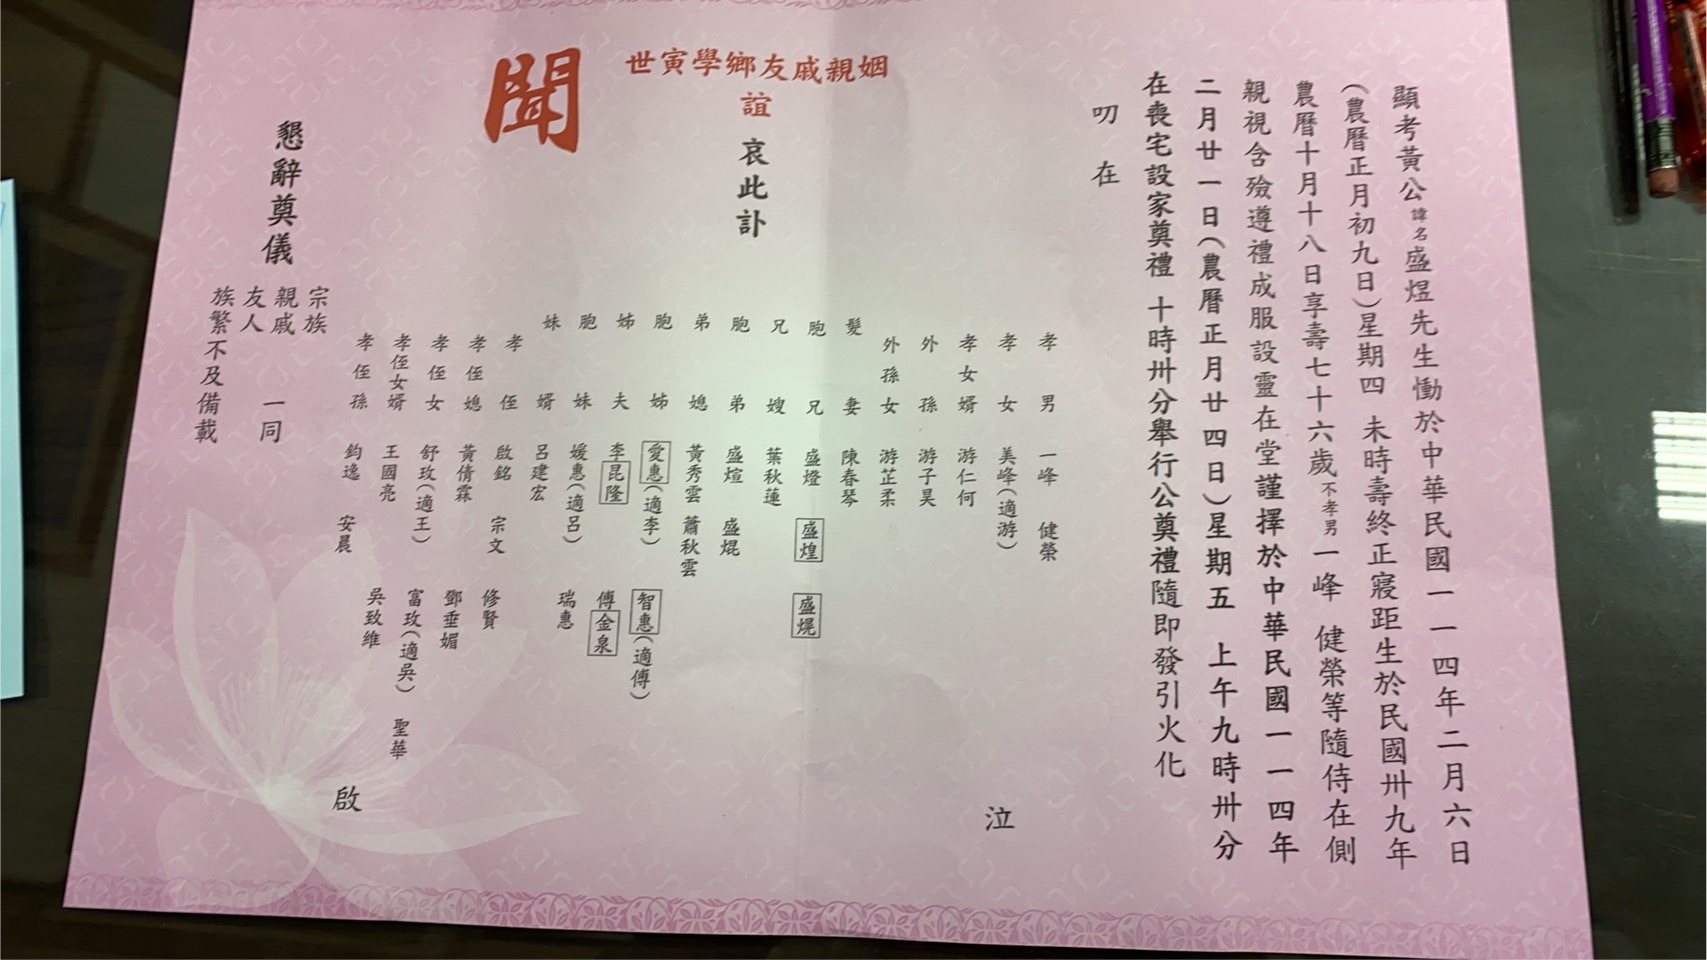 顯考黃公諱名盛煜先生慟於中華民國一一四年二月六日
(農曆正月初九日)星期四 未時壽終正寢距生於民國卅九年
農曆十月十八日享壽七十六歲不孝男一峰 健榮等隨侍在側
親視含殮遵禮成服設靈在堂謹擇於中華民國一一四年
二月廿一日(農曆正月廿四日)星期五 上午九時卅分
在喪宅設家奠禮 十時卅分舉行公奠禮隨即發引火化
叨在
姻親戚友鄉學寅世
誼
哀此訃
聞
孝男 一峰 健榮
孝女 美峰(適游)
孝女婿 游仁何
外孫 游子昊
外孫女 游芷柔
髮妻 陳春琴
胞兄 盛燈 盛煌 盛熀
兄嫂 葉秋蓮
胞弟 盛煊 盛焜
弟媳 黃秀雲 蕭秋雲
胞姊 愛惠(適李) 智惠(適傅)
姊夫 李昆隆 傅金泉
胞妹 媛惠(適呂) 瑞惠
妹婿 呂建宏
孝侄 啟銘 宗文 修賢
孝侄媳 黃倩霖 鄧垂媚
孝侄女 舒玫(適王) 富玫(適吳) 聖華
孝侄女婿 王國亮 吳致維
孝侄孫 鈞逸 安晨
泣
啟
懇辭奠儀
宗族
親戚 一同
友人
族繁不及備載